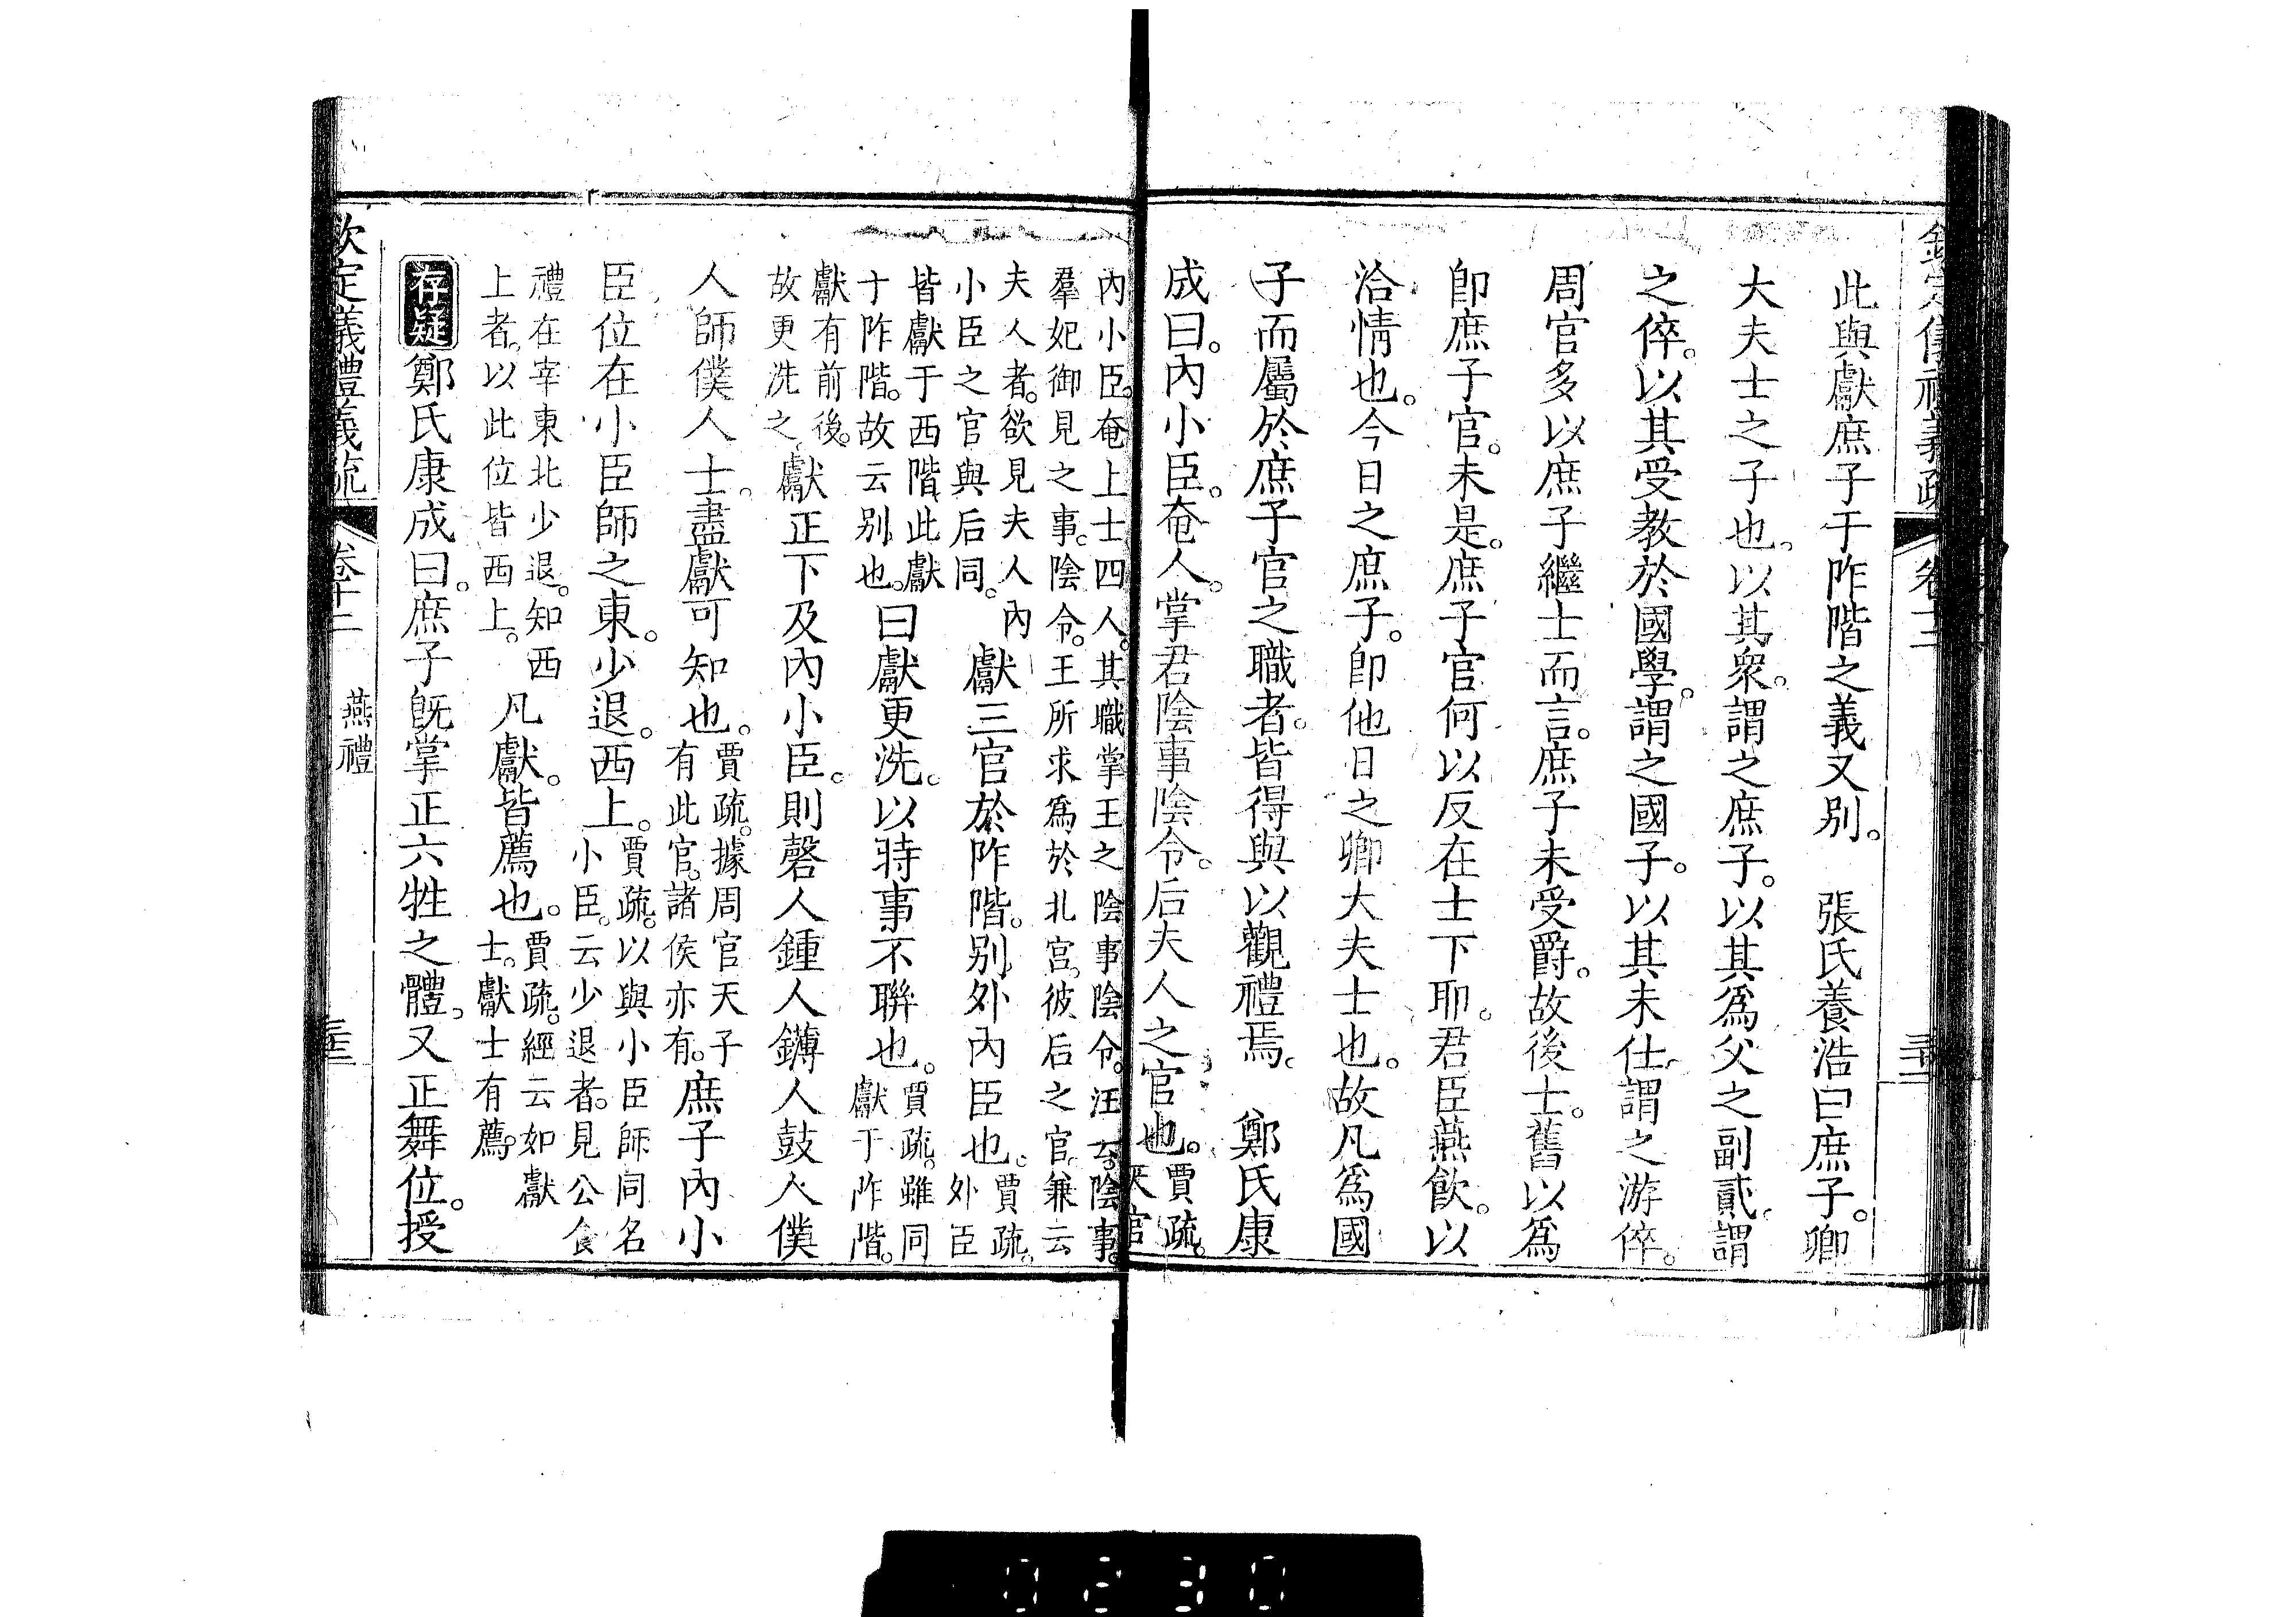 欽定儀禮義疏 卷十二 三十二
此與獻庶子于阼階之義又别。　張氏養浩曰庶子。卿
大夫士之子也。以其衆。謂之庶子。以其爲父之副貳。謂
之倅。以其受教於國學。謂之國子。以其未仕。謂之游倅。
周官多以庶子繼士而言。庶子未受爵。故後士。舊以爲
卽庶子官。未是。庶子官何以反在士下耶。君臣燕飲。以
洽情也。今日之庶子。卽他日之卿大夫士也。故凡爲國
子而屬於庶子官之職者。皆得與以觀禮焉。　鄭氏康
成曰。內小臣。奄人。掌君陰事陰令。后夫人之官也。賈疏。天官
內小臣。奄上士四人。其職掌王之陰事陰令。注云。陰事。
羣妃御見之事。陰令。王所求爲於北宮。彼后之官。兼云
夫人者。欲見夫人內
小臣之官與后同。　獻三官於阼階。别外內臣也。賈疏。外臣
皆獻于西階。此獻
于阼階。故云别也。　曰獻更洗。以時事不聯也。賈疏。雖同獻于阼階。
獻有前後。
故更洗之。獻正下及內小臣。則磬人鍾人鑮人鼓人僕
人師僕人士。盡獻可知也。賈疏。據周官天子有此官。諸侯亦有。庶子內小
臣位在小臣師之東。少退。西上。賈疏。以與小臣師同名小臣。云少退者。見公食
禮在宰東北少退。知西
上者。以此位皆西上。　凡獻。皆薦也。賈疏。經云如獻士。獻士有薦。
存疑 鄭氏康成曰。庶子旣掌正六牲之體。又正舞位。授
欽定儀禮義疏 卷十二 燕禮 三十三
0230